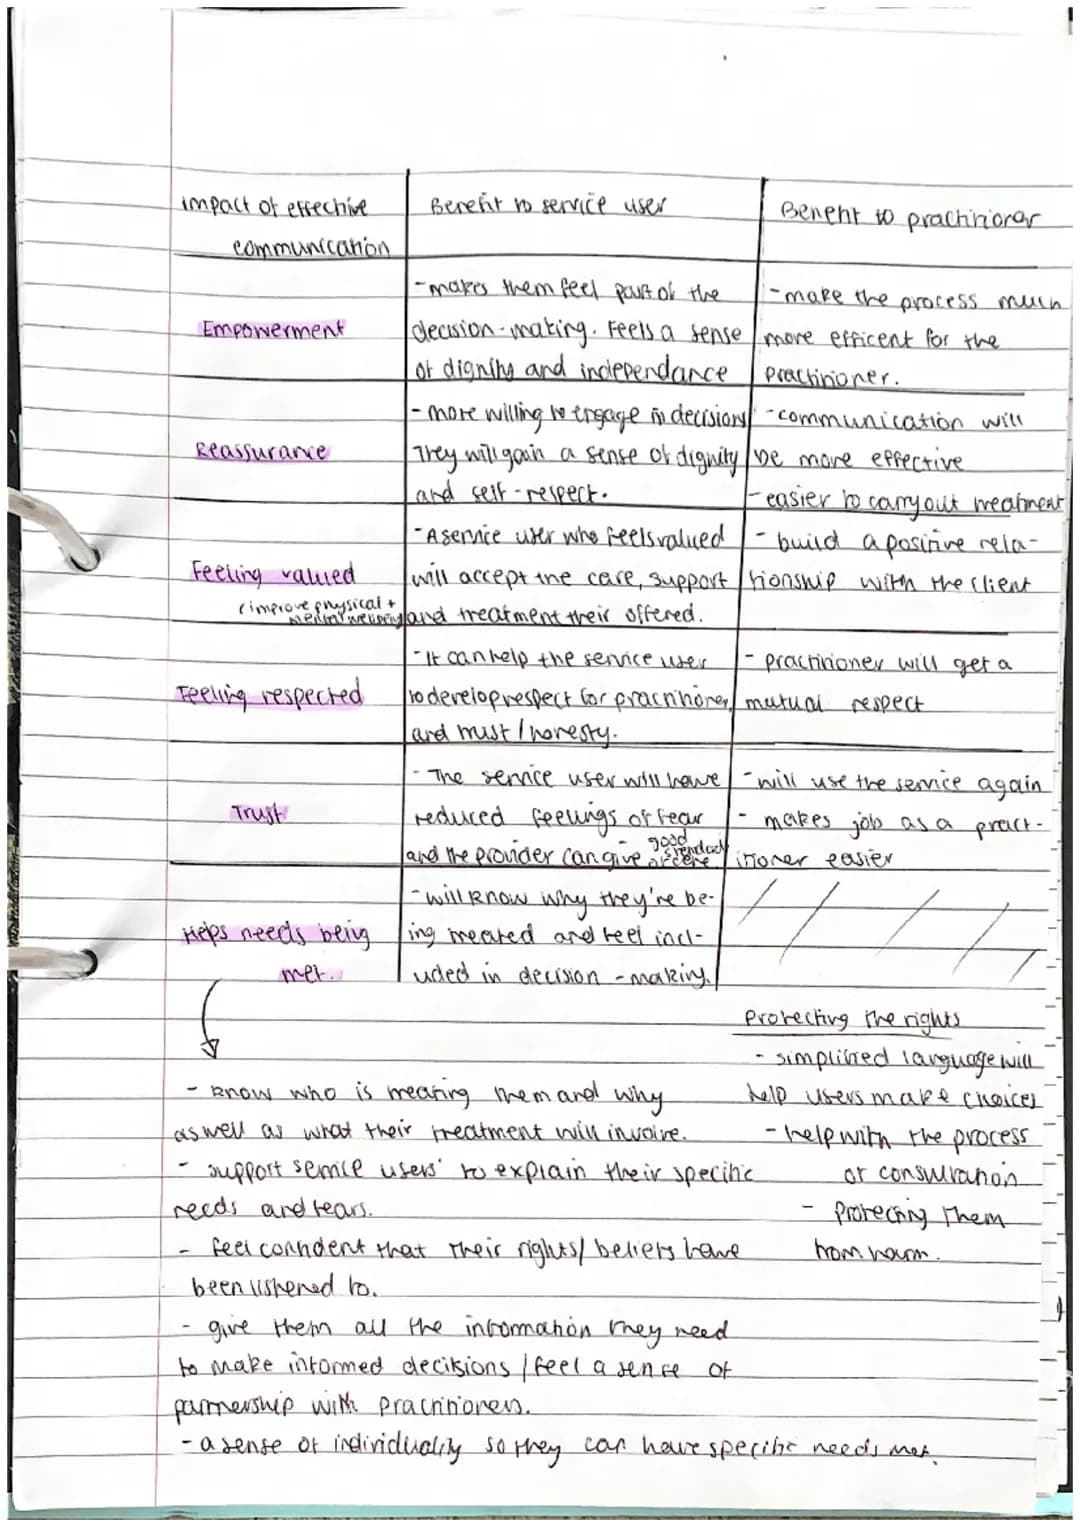 impact of effective
communication
Benefit to service user
Benefit to practitioner
Empowerment
- makes them feel part of the
decision-making. Feels a sense
of dignity and independance
- make the process much
more efficent for the
practitioner.
Reassurance
- more willing to engage in decisions
They will gain a sense of dignity
and self-respect.
- communication will
be more effective
- easier to carry out treatment
Feeling valued
(improve physical +
mental wellbeing
- A service user who feels valued
will accept the care, support
and treatment their offered.
- build a positive rela-
tionship with the client
Feeling respected
- It can help the service user
to develop respect for practitioner,
and trust / honesty.
- practitioner will get a
mutual respect
Trust
- The service user will have
reduced feelings of fear
and the provider can give good standard of care.
- will use the service again
- makes job as a pract-
itioner easier
Helps needs being
met.
- will know why they're be-
ing treated and feel incl-
uded in decision-making.
- know who is treating them and why
as well as what their treatment will involve.
- support service users' to explain their specific
needs and fears.
- feel confident that their rights/ beliefs have
been listened to.
- give them all the information they need
to make informed decisions / feel a sense of
partnership with practitioners.
- a sense of individuality so they can have specific needs met.
Protecting the rights
- simplified language will
help users make choices
- help with the process
of consultation
- protecting them
from harm.